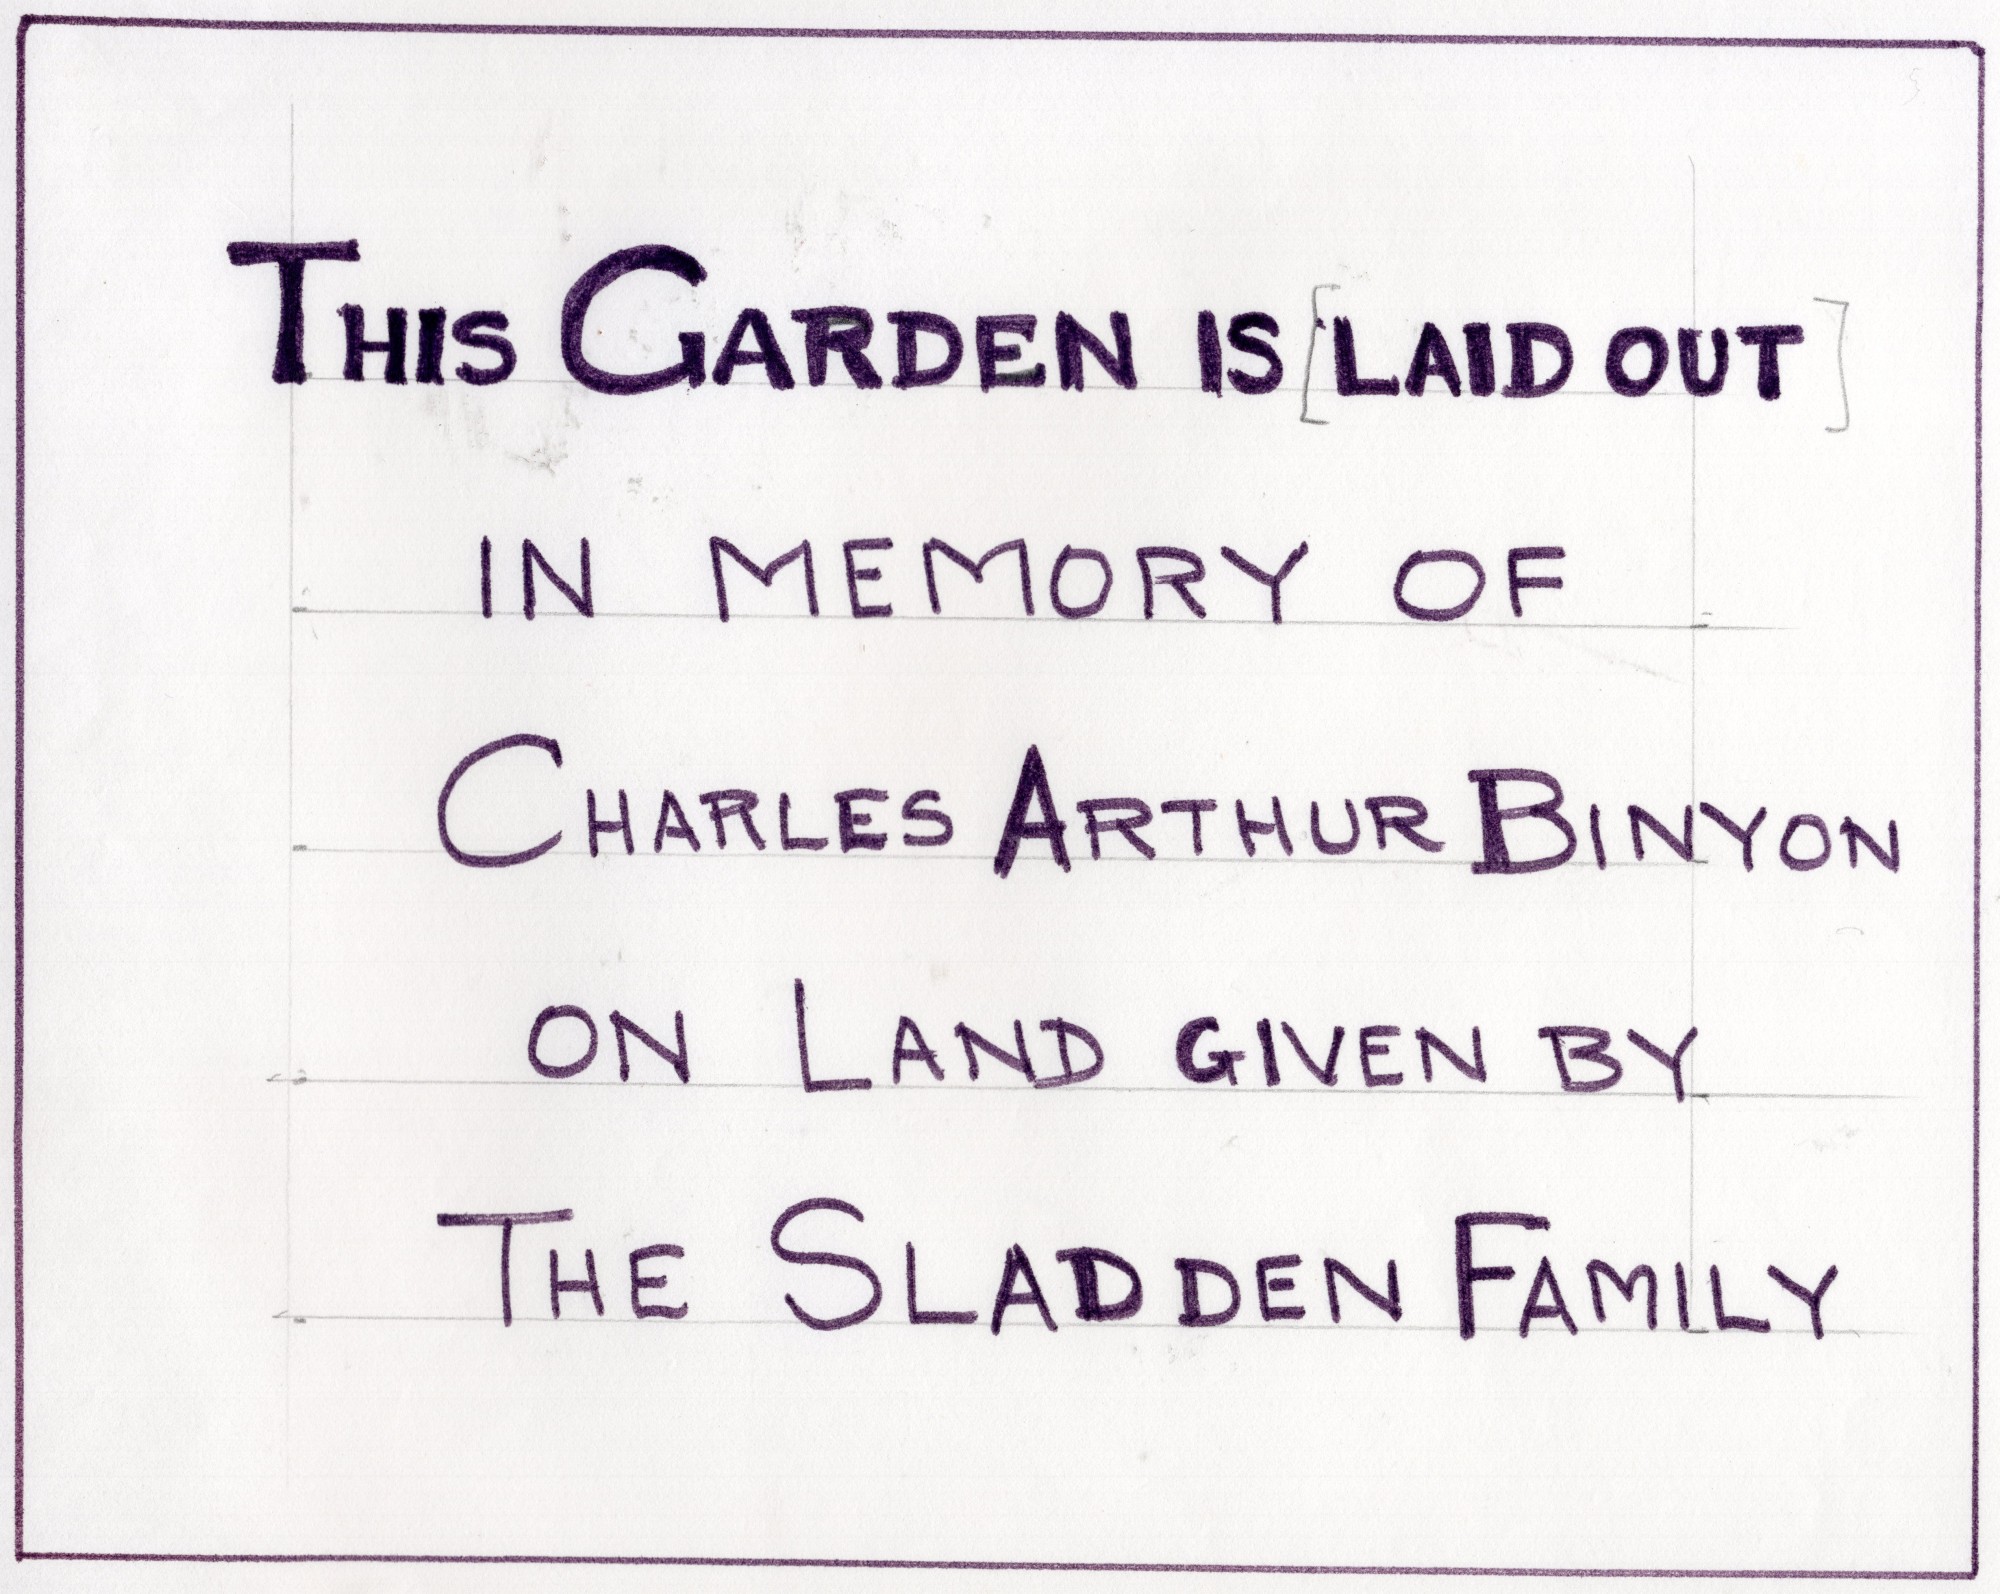 THIS GARDEN IS [LAID OUT]
IN MEMORY OF
CHARLES ARTHUR BINYON
ON LAND GIVEN BY
THE SLADDEN FAMILY